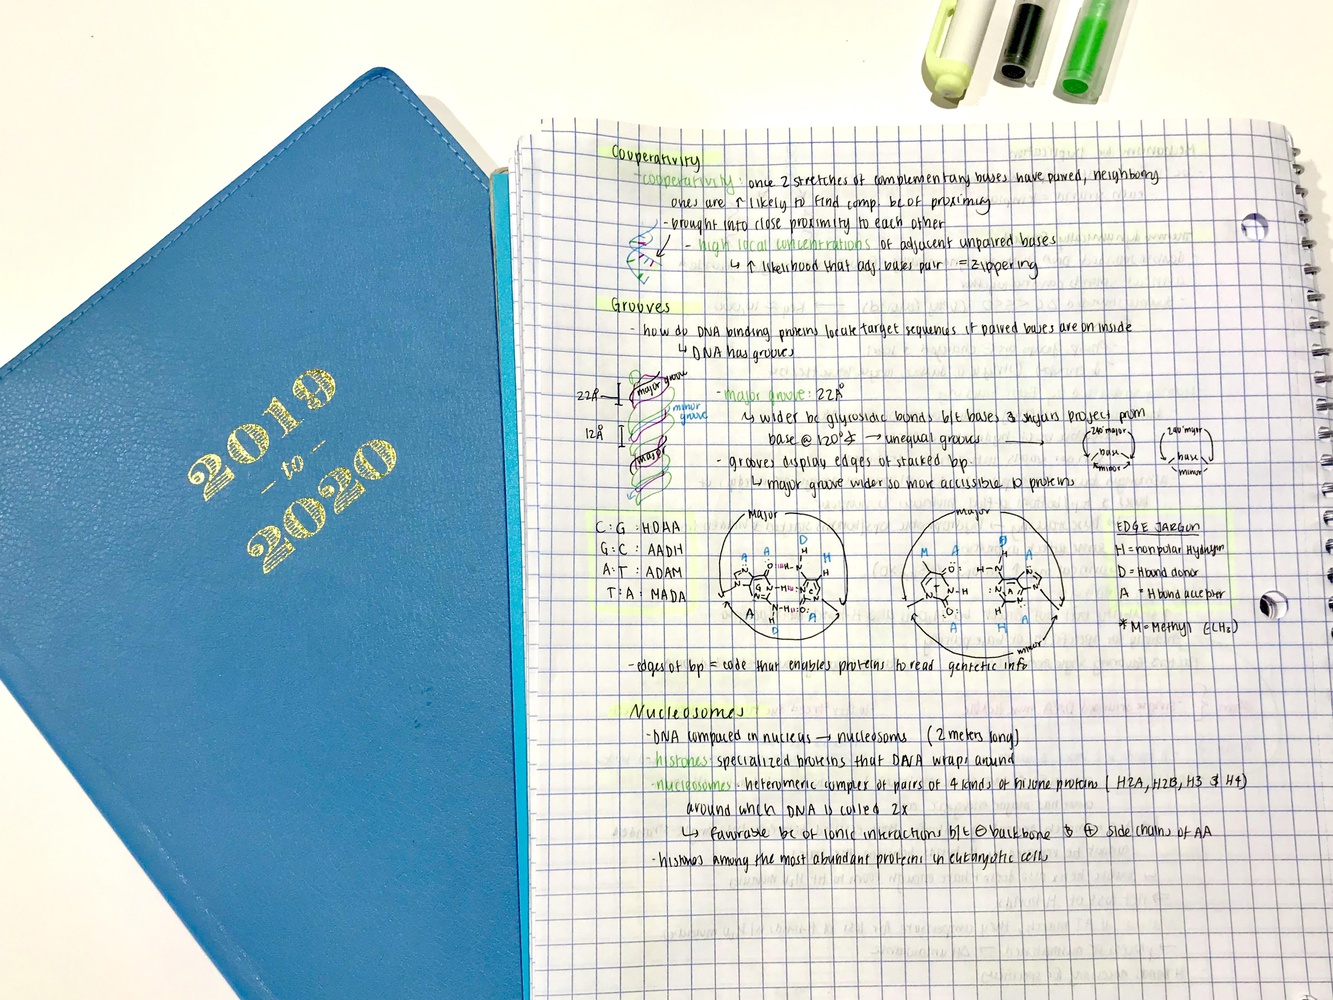 2019
to
2020
Cooperativity
- cooperativity: once 2 stretches of complementary bases have paired, neighboring
ones are ↑ likely to find comp. bc of proximity
- brought into close proximity to each other
- high local concentrations of adjacent unpaired bases
↳ ↑ likelihood that adj. bases pair = zippering
Grooves
- how do DNA binding proteins locate target sequences if paired bases are on inside
↳ DNA has grooves
22Å
major groove
minor groove
12Å
major
- major groove: 22Å
↳ wider bc glycosidic bonds b/t bases & sugars project from
base @ 120° ∡ → unequal grooves →
240° major
base
minor
240° major
base
minor
- grooves display edges of stacked bp.
↳ major groove wider so more accessible to proteins
C:G : HDAA
G:C : AADH
A:T : ADAM
T:A : MADA
Major
A A D H
G C
A D A
major
M A D A
T A
A H A
minor
EDGE JARGON
H = nonpolar Hydrogen
D = H bond donor
A = H bond acceptor
* M = Methyl (-CH₃)
- edges of bp = code that enables proteins to read genetic info
Nucleosomes
- DNA compared in nucleus → nucleosoms (2 meters long)
- histones: specialized proteins that DNA wraps around
- nucleosomes: heteromeric complex of pairs of 4 kinds of histone proteins (H2A, H2B, H3 & H4)
around which DNA is coiled 2x
↳ favorable bc of ionic interactions b/t ⊖ backbone & ⊕ side chains of AA
- histones among the most abundant proteins in eukaryotic cells